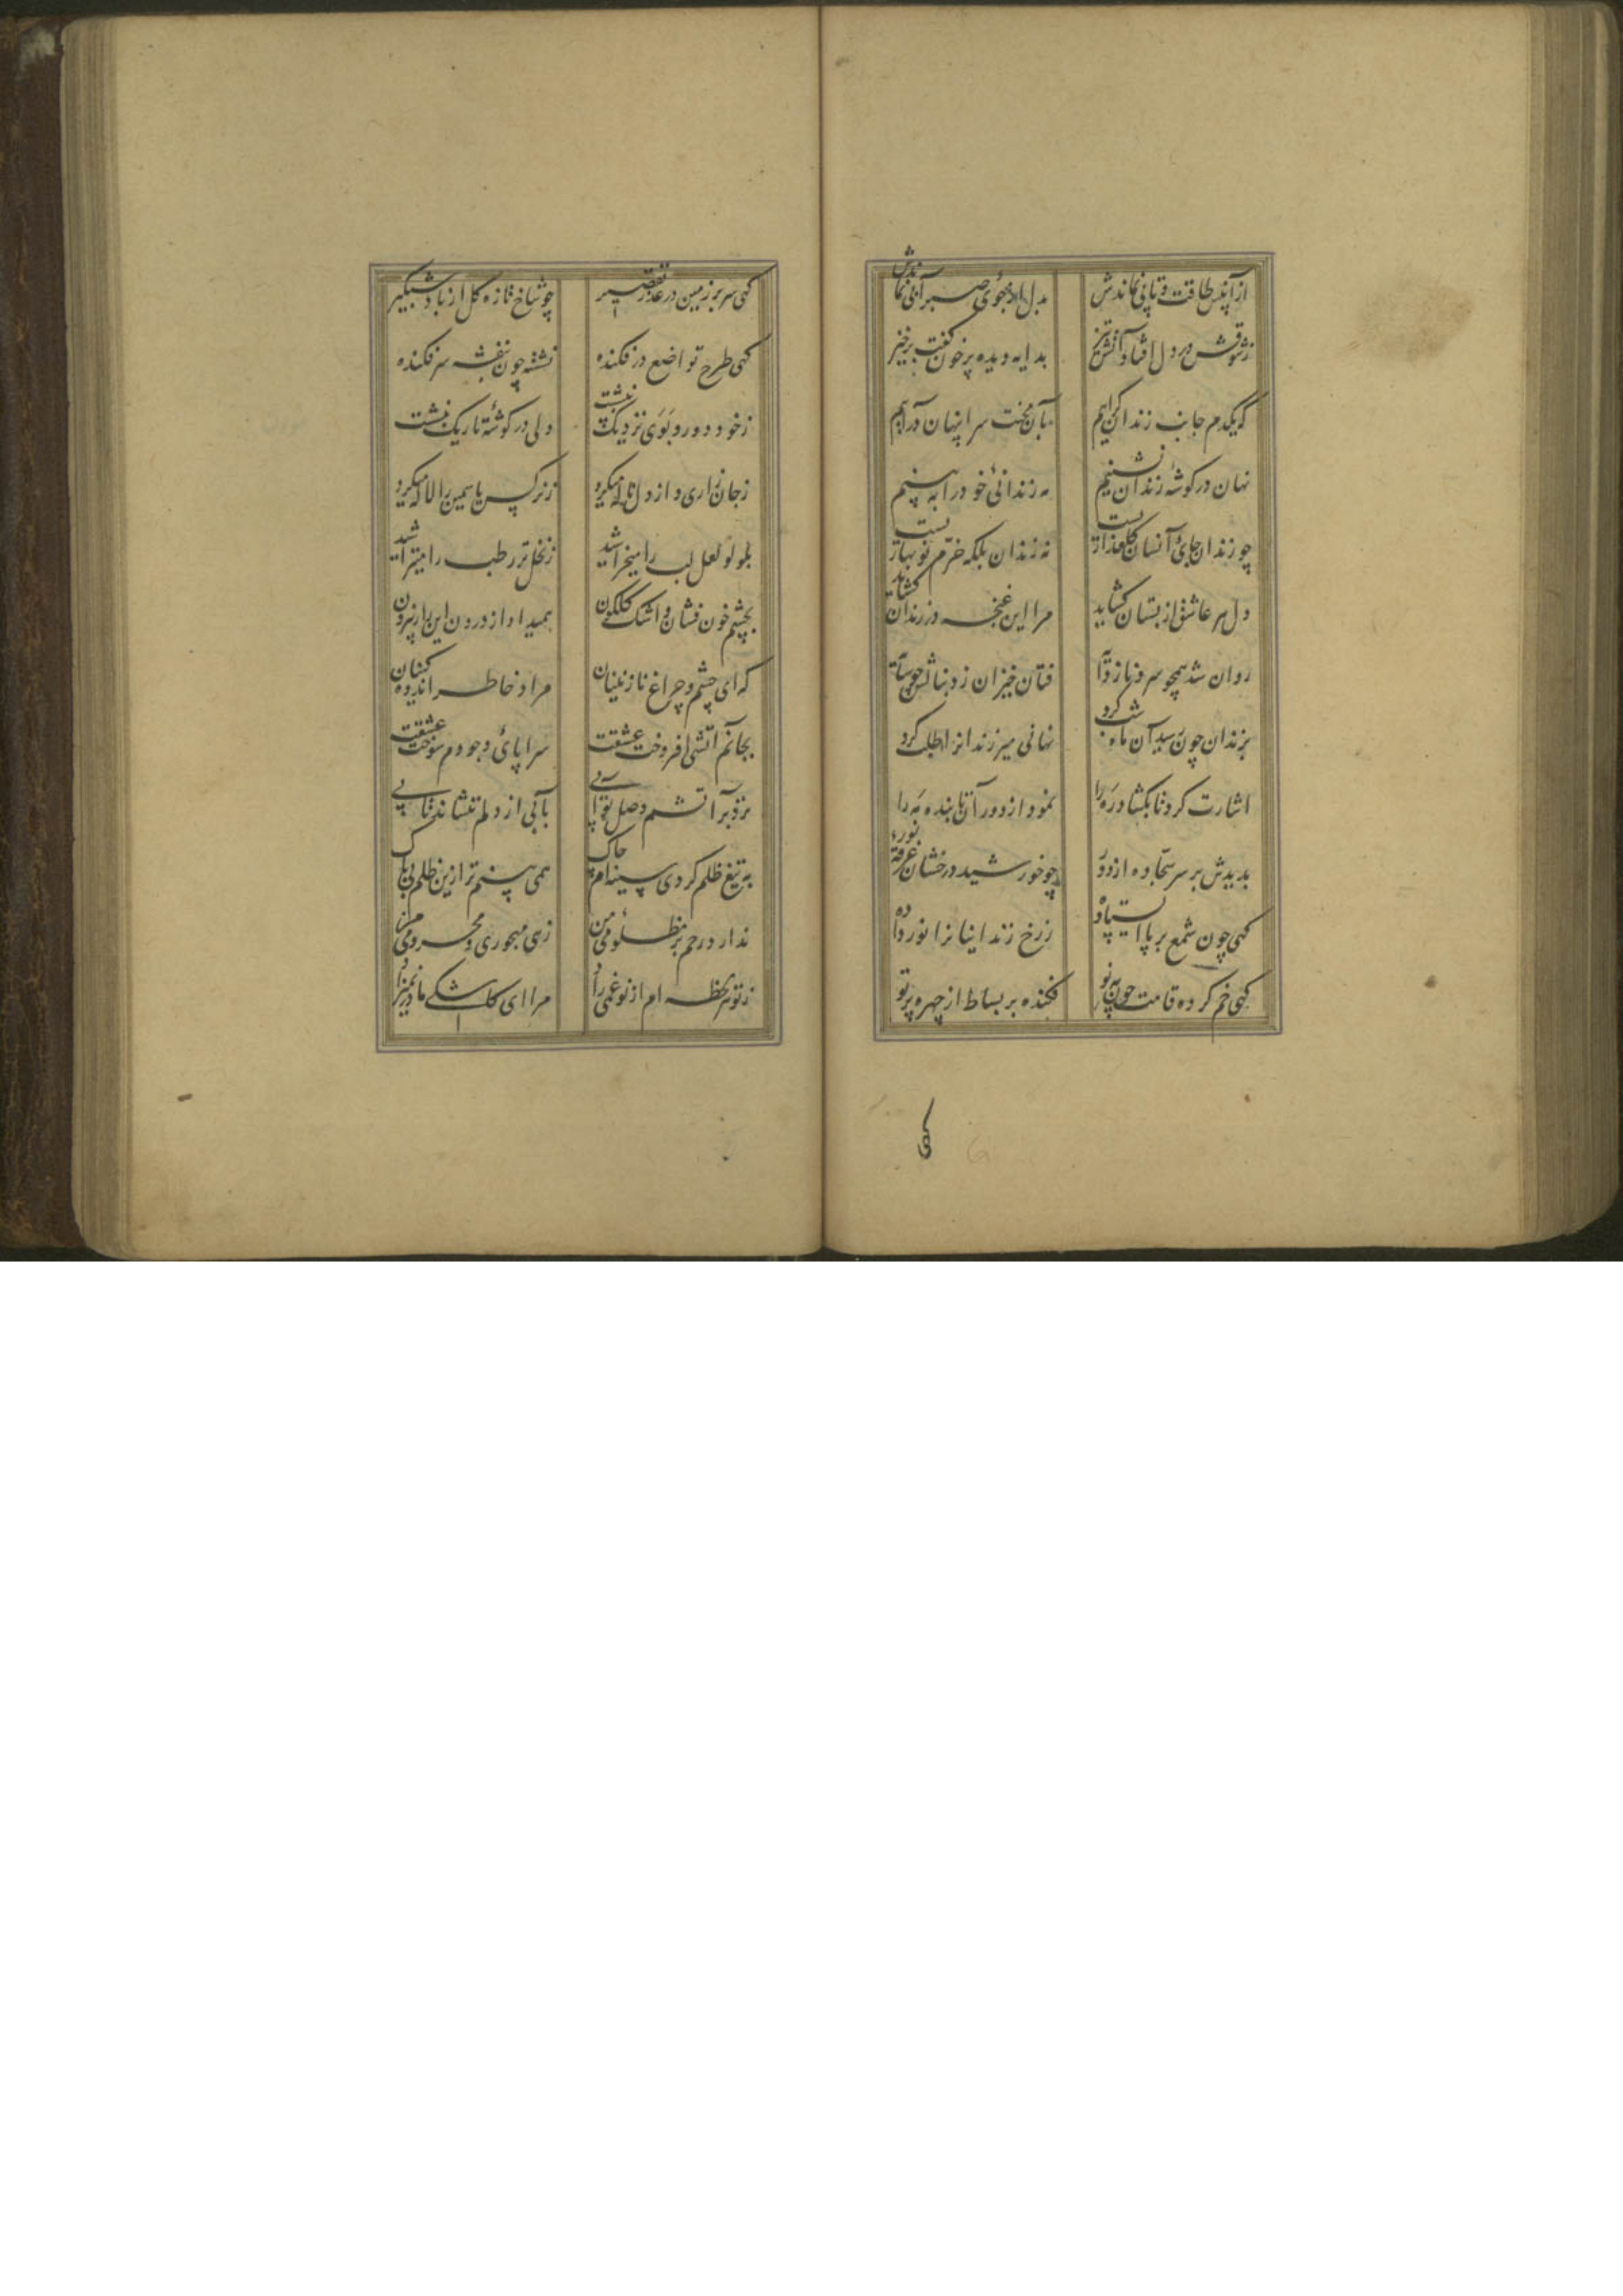 از آن پس طاقت و تابی نماندش بدل از جوی صبر آبی نماندش
ز شوقش در دل افتاد آتش تیز بدایه دیده پر خون گفت برخیز
که یکدم جانب زندان گراییم بآن محنت سرا پنهان درآییم
نهان در کوشهٔ زندان نشینیم مه زندانئ خود را به بینیم
چو زندان جای آنسان گلعذاریست نه زندان بلکه خرم نوبهاریست
دل هر عاشق از بستان کشاید مرا این غنچه در زندان کشاید
روان شد همچو سرو ناز و دایه فتان خیزان ز دنبالش چو سایه
بزندان چون رسید آن ماه شب کرد نهانی میر زندانرا طلب کرد
اشارت کرد تا بکشاد در را نمود از دور آن تابنده مه را
بدیدش بر سر سجاده از دور چو خورشید درخشان غرقهٔ نور
کهی چون شمع بر پا ایستاده ز رخ زندانیانرا نور داده
کهی خم کرده قامت چون مه نو فکنده بر بساط از چهره پرتو
کهی
کهی سر بر زمین در عذر تقصیر چو شاخ تازه کل از باد شبکیر
کهی طرح تواضع در فکنده نشسته چون بنفشه سر فکنده
ز خود دور و بوی نزدیک بنشست ولی در کوشهٔ تاریک بنشست
ز جان زاری و از دل ناله میکرد ز نرکس یاسمین را لاله میکرد
بلولو لعل لب را میخراشید ز نخل تر رطب را میتراشید
بچشم خون فشان و اشک کلکون همیداد از درون این راز بیرون
که ای چشم و چراغ نازنینان مراد خاطر اندوه کنان
بجانم آتشی افروخت عشقت سراپای وجودم سوخت عشقت
نزد بر آتشم وصل تو آبی بآبی از دلم ننشاند تابی
به تیغ ظلم کردی سینه ام چاک همی بینم ترا زین ظلم بی باک
نداری رحم بر مظلومی من زهی مهجوری و محرومی من
ز تو هر لحظه ام از نو غمی زاد مرا ای کاشکی مادر نمیزاد